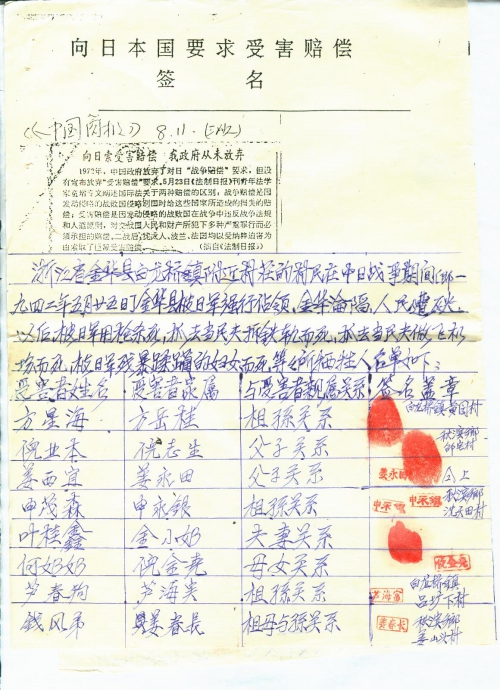 向日本国要求受害赔偿
签 名
《中国商报》 8.11.
向日索受害赔偿 我政府从未放弃
1972年，中国政府放弃了对日“战争赔偿”要求，但没
有宣布放弃“受害赔偿”要求，5月23日《法制日报》刊青年法学
发动侵略的战败国侵略别国时给这些国家所造成的损失的赔
偿；受害赔偿是因发动侵略的战败国在战争中违反战争法规
和人道原则，对交战国人民和财产所犯下多种严重罪行而必
须承担的赔偿，二战后，犹太人、波兰、法国均以受纳粹迫害为
由索取了巨额受害赔偿。 （摘自《法制日报》）
浙江省金华县白龙桥镇附近将经的村民在中日战争期间（即一
九四二年五月廿五日）金华县被日军强行占领，金华沦陷，人民遭殃，
以后，被日军用枪杀死，抓去当民夫拆铁轨而死，抓去当民夫做飞机
场而死，被日军残暴蹂躏的妇女而死，等如所牺牲人名单如下：
受害者姓名 受害者家属 与受害者亲属关系 签名盖章
方星海 方岳桂 祖孙关系 白龙桥镇黄图村
倪业本 倪志生 父子关系 秋滨乡
姜西宜 姜永田 父子关系 姜永田 仝上
申茂森 申永银 祖孙关系 秋滨乡
叶桂鑫 金小奶 夫妻关系
何奶奶 倪金尧 母女关系 倪金尧
芦春狗 芦海尖 祖孙关系 芦海富 白龙桥镇
钱凤弟 姜春长 祖母与孙关系 姜春长 秋滨乡
姜山头村